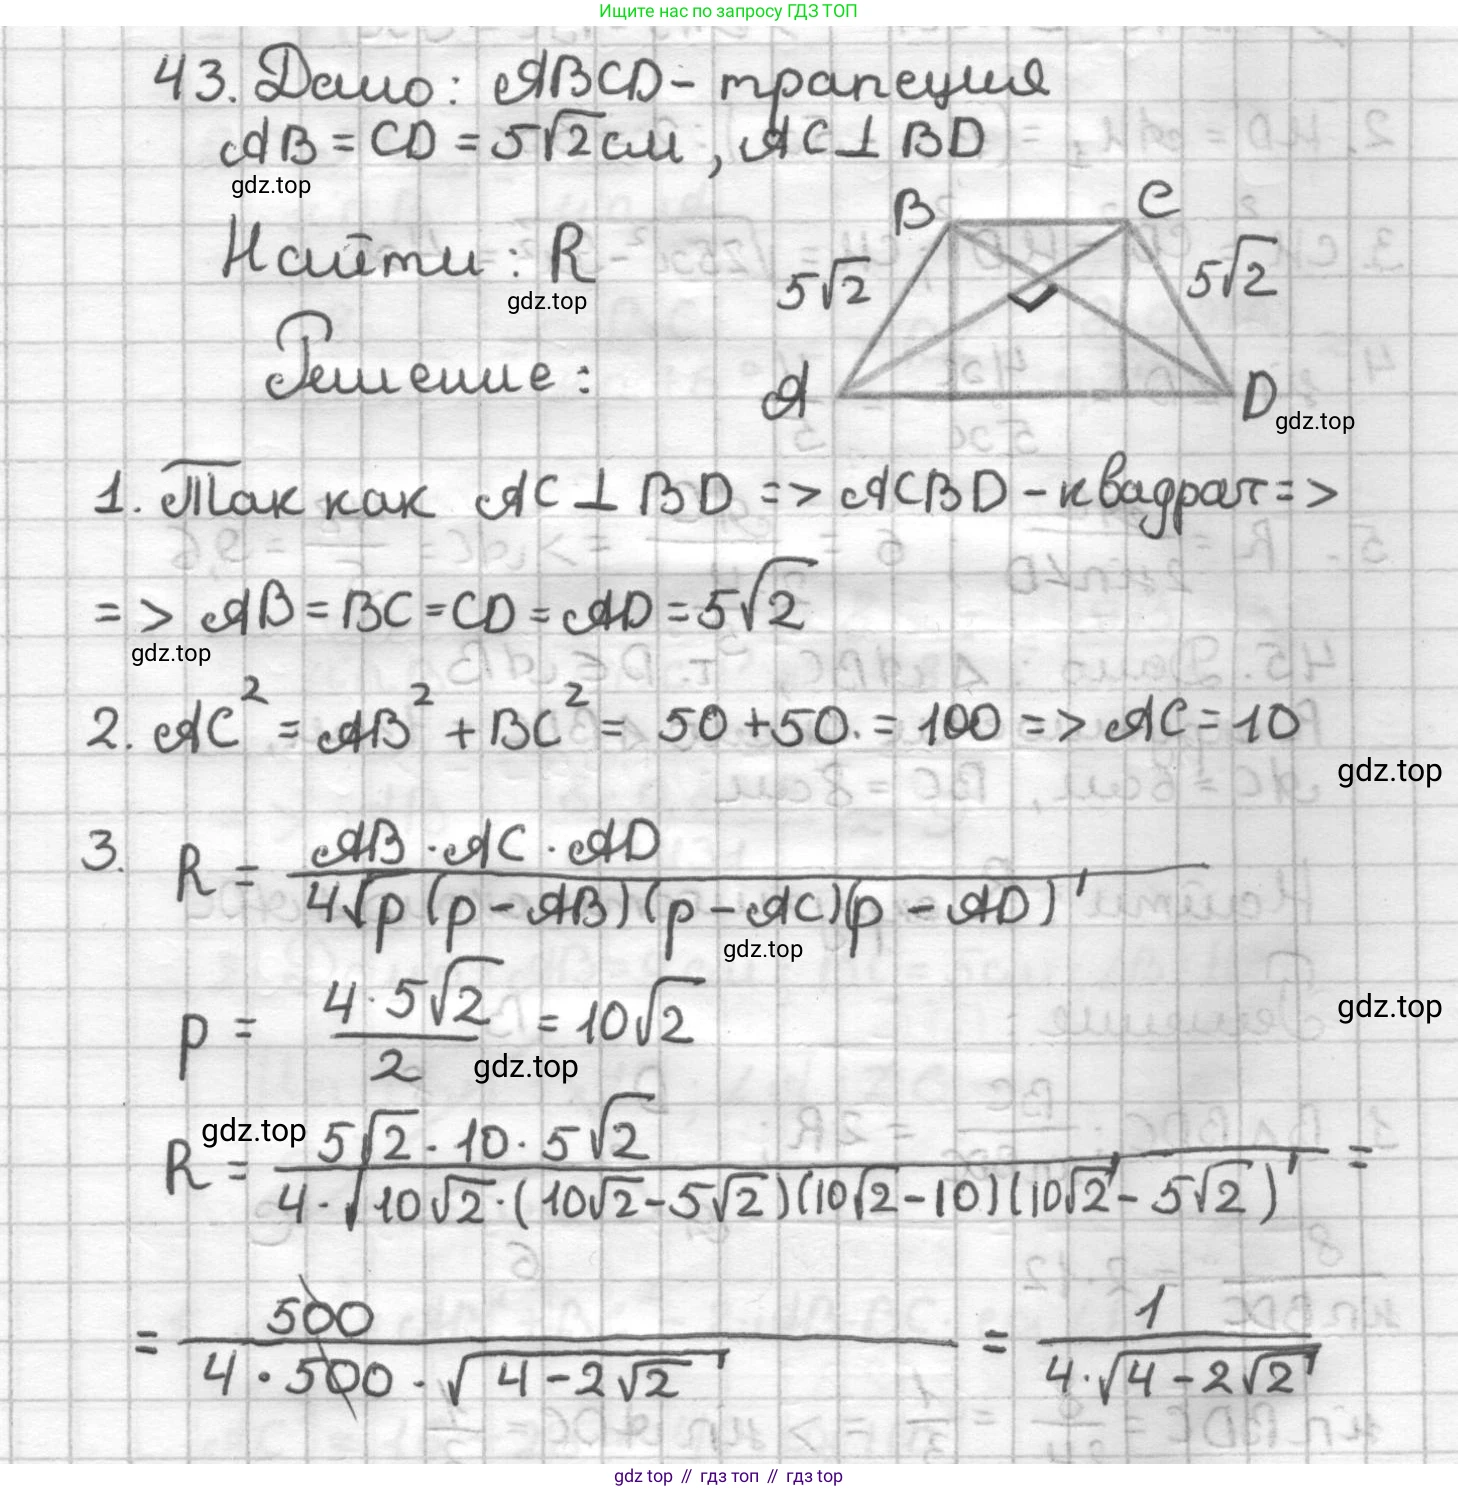 Ищите нас по запросу ГДЗ ТОП
43. Дано: ABCD - трапеция
AB = CD = 5√2 см, AC ⊥ BD
gdz.top
Найти: R
gdz.top
Решение:
B
C
5√2
5√2
A
D
gdz.top
1. Так как AC ⊥ BD => ACBD - квадрат =>
=> AB = BC = CD = AD = 5√2
gdz.top
2. AC² = AB² + BC² = 50 + 50 = 100 => AC = 10
gdz.top
3. R = AB · AC · AD / 4√(p(p - AB)(p - AC)(p - AD))
gdz.top
p = 4 · 5√2 / 2 = 10√2
gdz.top
gdz.top
gdz.top
R = 5√2 · 10 · 5√2 / 4 · √(10√2 · (10√2 - 5√2)(10√2 - 10)(10√2 - 5√2)) =
= 500 / 4 · 500 · √(4 - 2√2) = 1 / 4 · √(4 - 2√2)
gdz top // гдз топ // gdz top